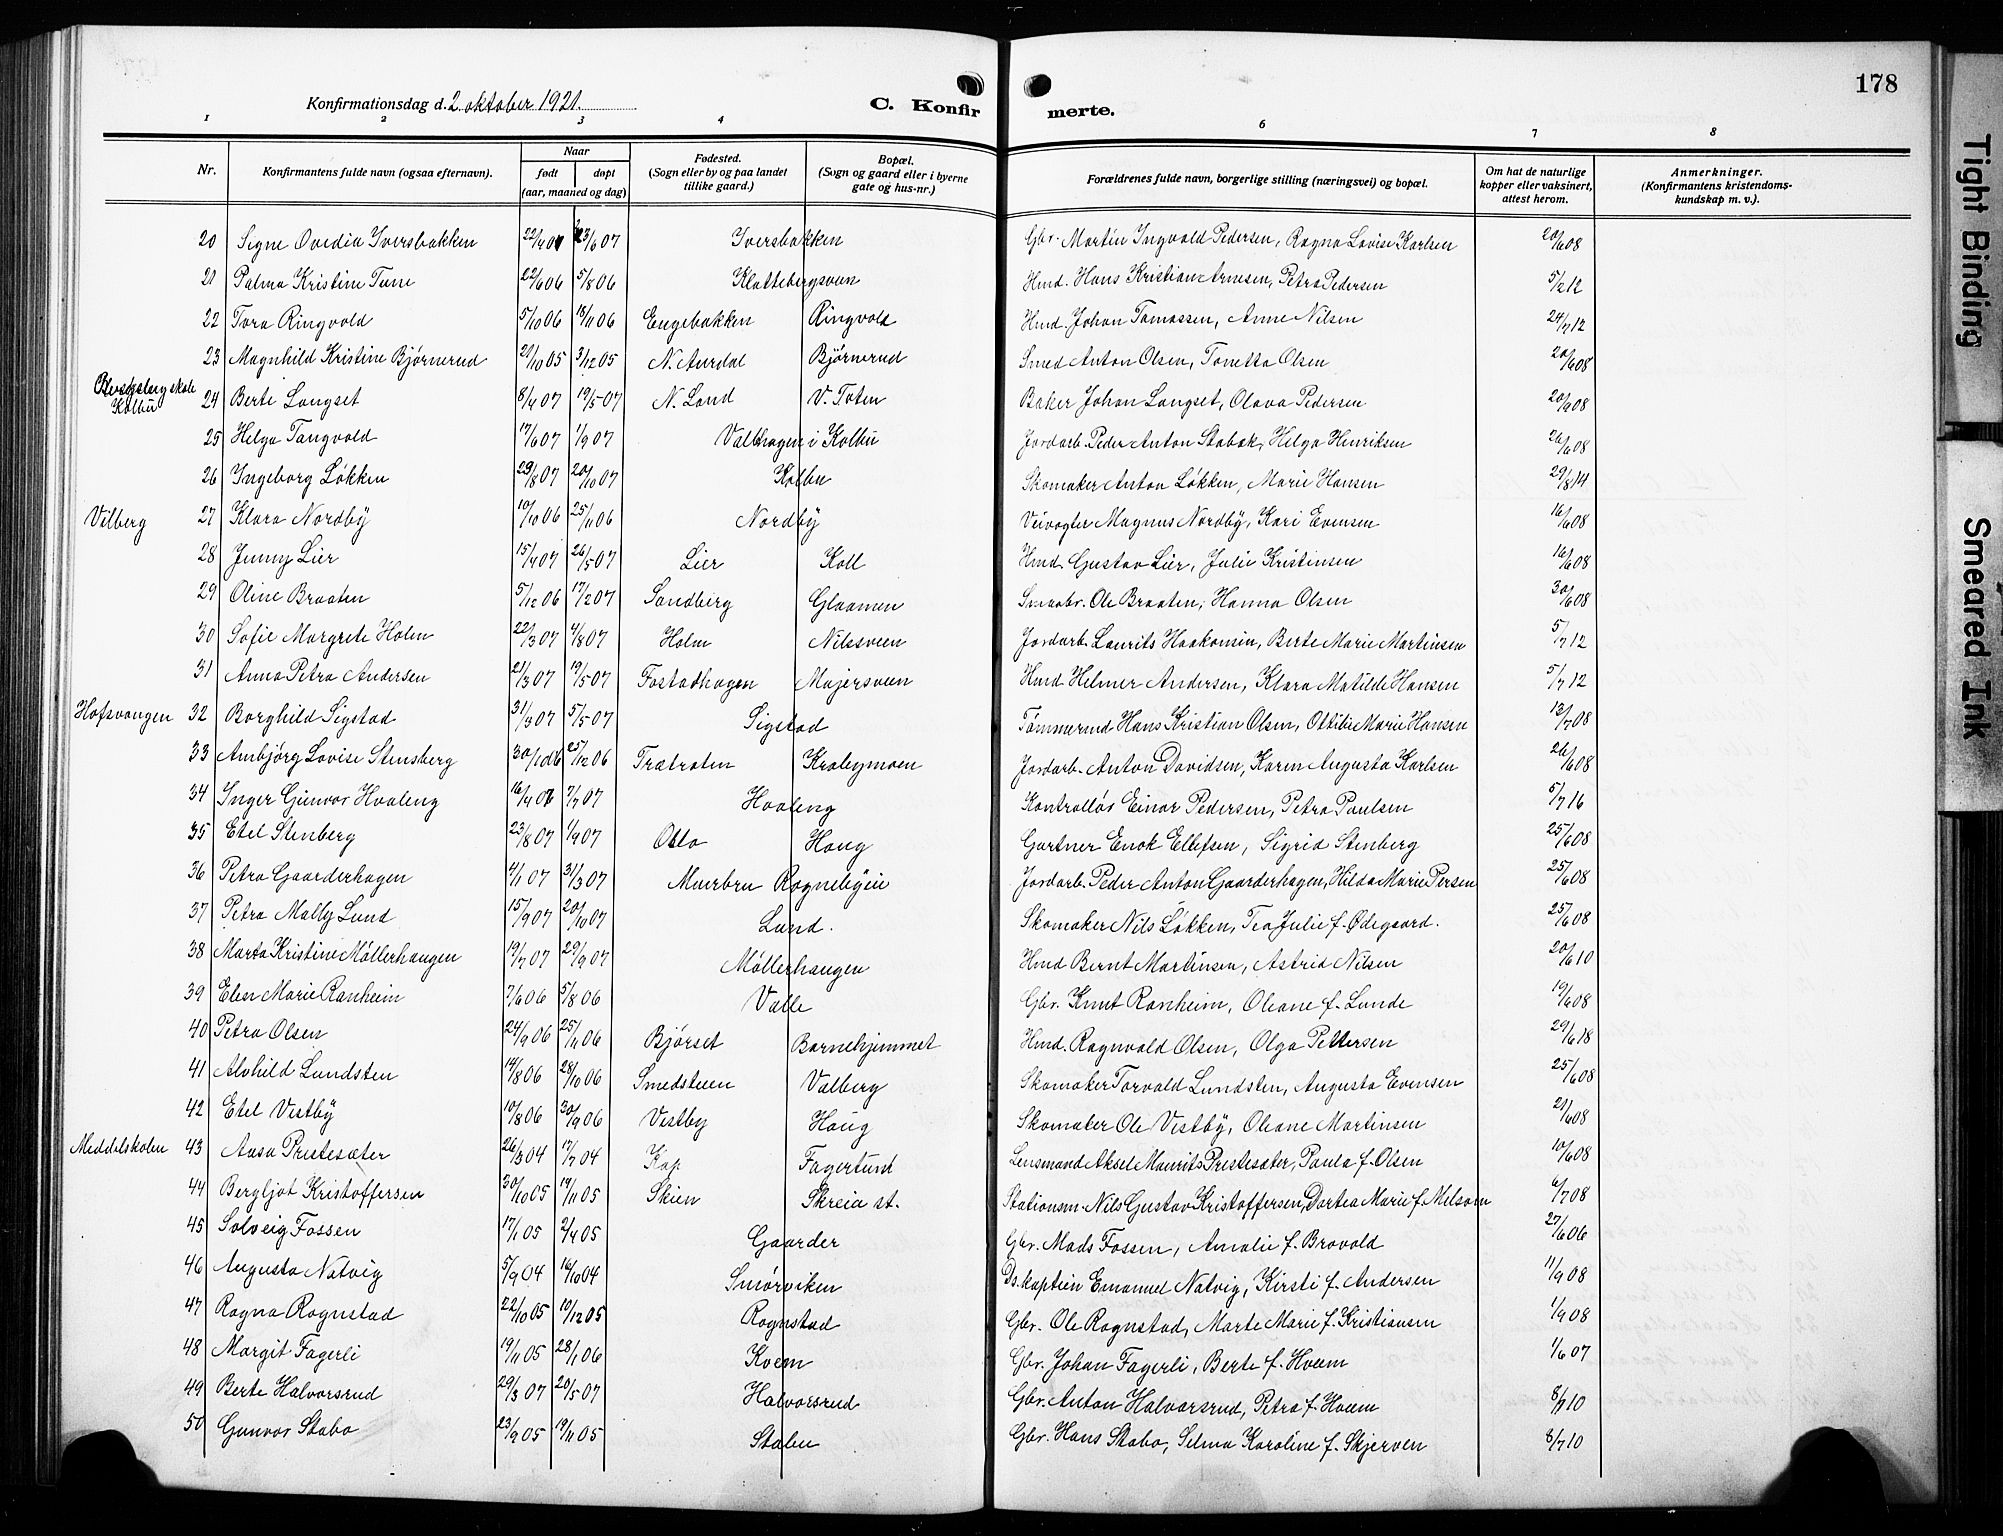 178
Konfirmationsdag d. 2. oktober 1921.
C. Konfirmerte.
1 2 3 4 6 7 8
Nr. Konfirmantens fulde navn (ogsaa efternavn). Naar født døpt (aar, maaned og dag) Fødested. (Sogn eller by og paa landet tillike gaard.) Bopæl. (Sogn og gaard eller i byerne gate og hus-nr.) Forældrenes fulde navn, borgerlige stilling (næringsvei) og bopæl. Om hat de naturlige kopper eller vaksinert, attest herom. Anmerkninger. (Konfirmantens kristendoms-kundskap m. v.).
20 Signe Ovedia Iversbakken 22/4 07 23/6 07 Iversbakken Gbr. Martin Ingvald Pedersen, Ragna Lovise Karlsen 20/6 08
21 Palma Kristine Tune 22/6 06 5/8 06 Klattebergsveen Hmd. Hans Kristian Arnesen, Petra Pedersen 5/2 12
22 Tora Ringvold 5/10 06 18/11 06 Engebakken Ringvold Hmd. Johan Tomassen, Anne Nilsen 24/7 12
23 Magnhild Kristine Bjørnerud 21/10 05 3/12 05 N. Aurdal Bjørnerud Smed Anton Olsen, Tonetta Olsen 20/6 08
skole Kolbu 24 Berte Langset 8/4 07 19/5 07 N. Land V. Toten Baker Johan Langset, Olava Pedersen 20/9 08
25 Helga Tangvold 17/6 07 1/9 07 Valhagen i Kolbu Jordarb. Peder Anton Stabak, Helga Henriksen 26/6 08
26 Ingeborg Løkken 29/8 07 20/10 07 Kolbu Skomaker Anton Løkken, Marie Hansen 29/8 14
Vilberg 27 Klara Nordby 10/10 06 25/11 06 Nordby Veivogter Magnus Nordby, Kari Evensen 16/6 08
28 Jenny Lier 15/4 07 26/5 07 Lier Koll Hmd. Gustav Lier, Julie Kristinsen 16/6 08
29 Oline Braaten 5/12 06 17/2 07 Sandberg Glaamen Smaabr. Ole Braaten, Hanna Olsen 30/6 08
30 Sofie Margrete Holm 22/3 07 4/8 07 Holm Nilssveen Jordarb. Laurits Haakonsen, Berte Marie Martinsen 5/7 12
31 Anna Petra Andersen 21/3 07 19/5 07 Fostadhagen Majersveen Hmd. Helmer Andersen, Klara Matilde Hansen 5/7 12
Hofsvangen 32 Borghild Sigstad 31/3 07 5/5 07 Sigstad Tømmermd Hans Kristian Olsen, Ottilie Marie Hansen 13/7 08
33 Ambjørg Lovise Stensberg 30/10 06 25/12 06 Trætraten Krabymoen Jordarb. Anton Davidsen, Karen Augusta Karlsen 26/6 08
34 Inger Gunvor Hvaleng 16/4 07 7/7 07 Hvaleng Kontrollør Einar Pedersen, Petra Paulsen 5/7 16
35 Etel Stenberg 23/8 07 1/9 07 Oslo Haug Gartner Enok Ellefsen, Sigrid Stenberg 25/6 08
36 Petra Gaarderhagen 4/1 07 31/3 07 Muerbru Rognebyeie Jordarb. Peder Anton Gaarderhagen, Hilda Marie Persen 25/6 08
37 Petra Mally Lund 15/9 07 20/10 07 Lund. Skomaker Nils Løkken, Tea Julie f. Ødegaard. 25/6 08
38 Marta Kristine Møllerhaugen 19/7 07 29/9 07 Møllerhaugen Hmd Bernt Martinsen, Astrid Nilsen 20/6 10
39 Elen Marie Ranheim 7/6 06 5/8 06 Valle Gbr. Knut Ranheim, Oleane f. Lunde 19/6 08
40 Petra Olsen 24/9 06 25/11 06 Bjørset Barnehjemmet Hmd. Ragnvald Olsen, Olga Pettersen 29/6 18
41 Alvhild Lundsten 14/8 06 28/10 06 Smedsteen Valberg Skomaker Torvald Lundsten, Augusta Evensen 25/6 08
42 Etel Vestby 10/8 06 30/9 06 Vestby Haug Skomaker Ole Vestby, Oleane Martinsen 21/6 08
Meddelskolen 43 Aasa Prestesæter 26/3 04 17/7 04 Kap Fagertund Lensmand Aksel Maurits Prestesæter, Paula f. Olsen 10/6 08
44 Bergljot Kristoffersen 30/10 05 19/11 05 Skien Skreia st. Stationsm. Nils Gustav Kristoffersen, Dortea Marie f. Melsom 6/7 08
45 Solveig Fossen 17/1 05 2/4 05 Gaarder Gbr. Mads Fossen, Amalie f. Brovold 27/6 06
46 Augusta Natvig 5/9 04 16/10 04 Smørviken Ds.kaptein Emanuel Natvig, Kirsti f. Andersen 11/9 08
47 Ragna Rognstad 22/10 05 10/12 05 Rognstad Gbr. Ole Rognstad, Marte Marie f. Kristiansen 1/9 08
48 Margit Fagerli 19/11 05 28/1 06 Kvem Gbr. Johan Fagerli, Berte f. Hveem 1/6 07
49 Berte Halvorsrud 29/3 07 20/5 07 Halvorsrud Gbr. Anton Halvorsrud, Petra f. Hveem 8/7 10
50 Gunvor Stabo 23/9 05 19/11 05 Stabu Gbr. Hans Stabo, Selma Karoline f. Skjerven 8/7 10
Tight Binding
Smeared Ink